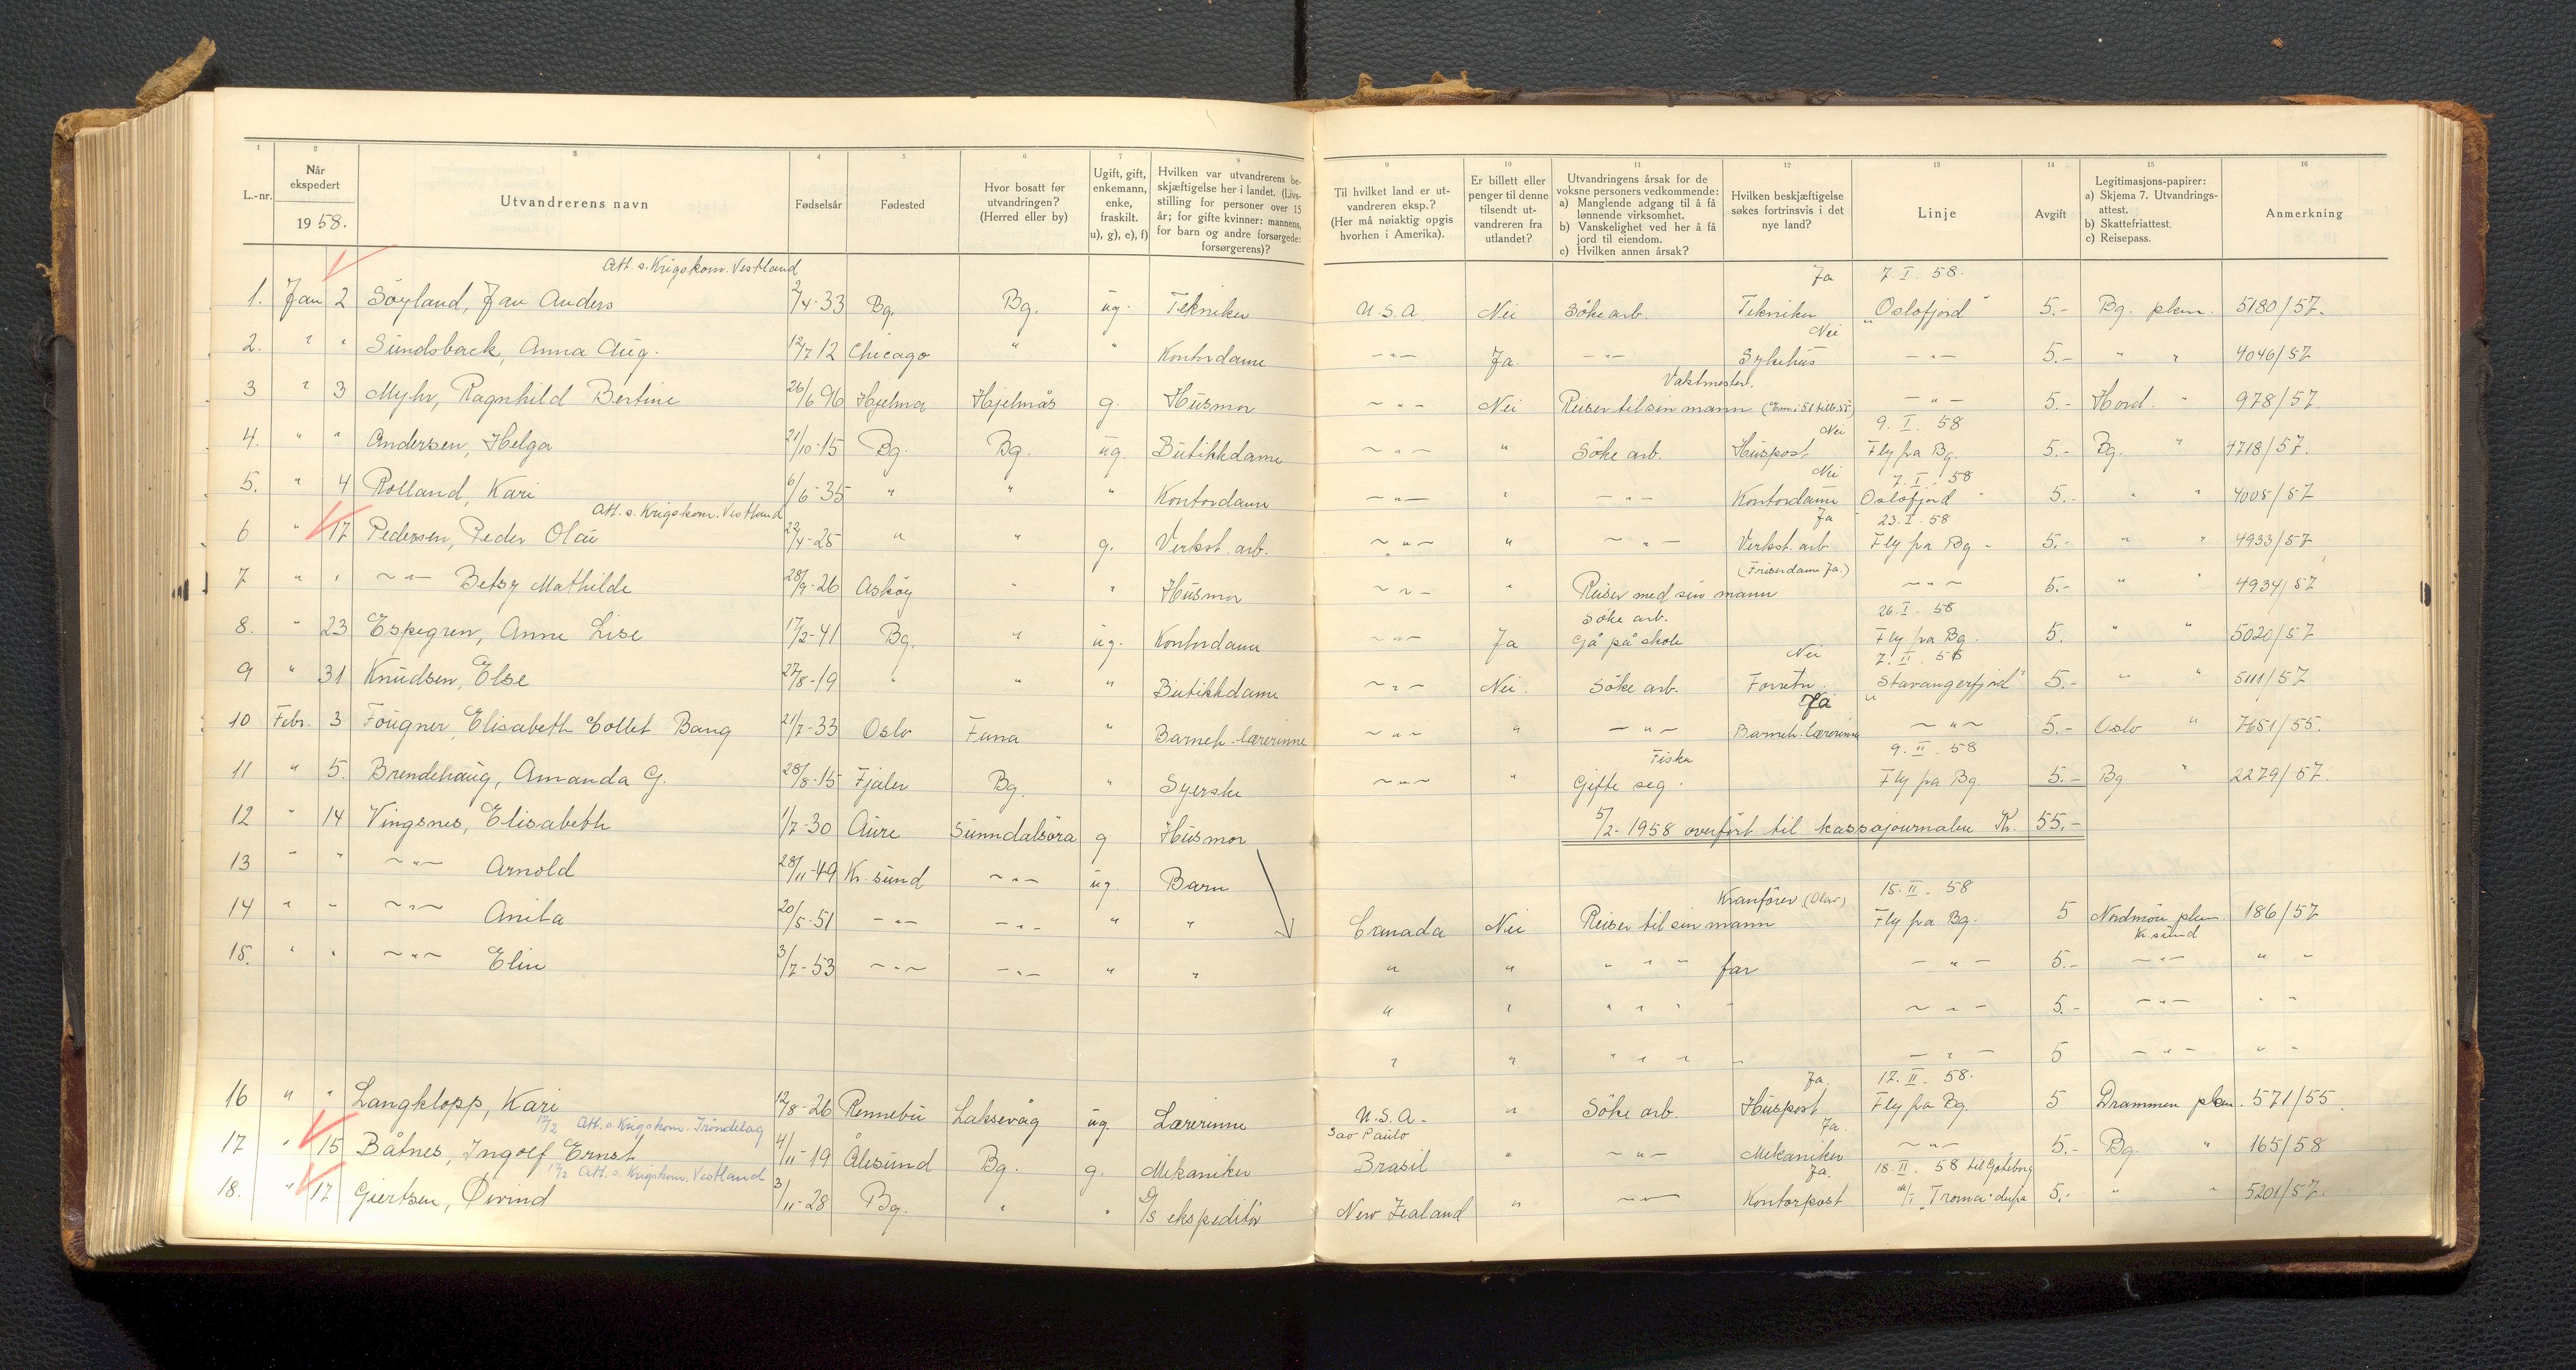 1 2 3 4 5 6 7 8 9 10 11 12 13 14 15 16
L.-nr.
Når ekspedert
1958.
Utvandrerens navn
Fødselsår
Fødested
Hvor bosatt før utvandringen? (Herred eller by)
Ugift, gift, enkemann, enke, fraskilt. u), g), e), f)
Hvilken var utvandrerens beskjæftigelse her i landet. (Livsstilling for personer over 15 år; for gifte kvinner: mannens, for barn og andre forsørgede: forsørgerens)?
Til hvilket land er utvandreren eksp.? (Her må nøiaktig opgis hvorhen i Amerika).
Er billett eller penger til denne tilsendt utvandreren fra utlandet?
Utvandringens årsak for de voksne personers vedkommende:
a) Manglende adgang til å få lønnende virksomhet.
b) Vanskelighet ved her å få jord til eiendom.
c) Hvilken annen årsak?
Hvilken beskjæftigelse søkes fortrinsvis i det nye land?
Linje
Avgift
Legitimasjons-papirer:
a) Skjema 7. Utvandringsattest.
b) Skattefriattest.
c) Reisepass.
Anmerkning
Att. s. Krigskom. Vestland Ja 7. I. 58.
1. Jan 2 Søyland, Jan Anders 2/4-33 Bg. Bg. ug. Tekniker U.S.A. Nei Søke arb. Tekniker "Oslofjord" 5.- Bg. pkm. 5180/57.
Nei
2. " " Sundsback, Anna Aug. 12/7 12 Chicago " " Kontordame -"- Ja. -"- Sykehus -"- 5.- " " 4046/57
Vaktmester.
3 " 3 Myhr, Ragnhild Bertine 26/6 96 Hjelmås g. Husmor -"- Nei Reiser til sin mann -"- 5.- Hord. " 978/57
Nei 9. I. 58
4. " " Andersen, Helga 21/10-15 Bg. Bg. ug. Butikkdame -"- " Søke arb. Huspost Fly fra Bg. 5.- Bg. " 4718/57.
Nei 7. I. 58
5. " 4 Rolland, Kari 6/6-35 " " " Kontordame -"- " -"- Kontordame Oslofjord " 5.- " " 4005/57
Att. s. Krigskom. Vestland Ja 23. I. 58
6 " 17 Pedersen, Peder Olai 22/4-25 " " g. Verkst. arb. -"- " -"- Verkst. arb Fly fra Bg - 5.- " " 4933/57
(Friserdame Ja.)
7 " " -"- Betsy Mathilde 28/9-26 Askøy " " Husmor -"- " Reiser med sin mann -"- 5.- " " 4934/57
Søke arb. 26. I. 58
8. " 23 Espegren, Anne Lise 17/2-41 Bg. " ug. Kontordame -"- Ja Gå på skole Fly fra Bg. 5. " " 5020/57
Nei 7. II. 58
9 " 31 Knudsen, Else 27/8-19 " " " Butikkdame -"- Nei. Søke arb. Forretn. "Stavangerfjord" 5.- " " 5111/57
Ja
10 Febr. 3 Fougner, Elisabeth Collet Bang 21/7-33 Oslo Fana " Barneh. lærerinne -"- " -"- Barneh. lærerinne -"- 5.- Oslo " 7651/55.
Fisker 9. II. 58
11 " 5. Brendehaug, Amanda G. 28/8-15 Fjaler Bg. " Syerske -"- " Gifte seg. Fly fra Bg. 5.- Bg. " 2279/57.
12 " 14 Vingsnes, Elisabeth 1/7-30 Aure Sunndalsøra g Husmor 5/2-1958 overført til kassajournalen Kr. 55.-
13 " " -"- Arnold 28/11-49 Kr. sund -"- ug. Barn
Kranfører (Olav) 15. II. 58
14 " " -"- Anita 20/5-51 -"- -"- " " Canada Nei Reiser til sin mann Fly fra Bg. 5 Nordmøre pkm. Kr. sund 186/57
15. " " -"- Elin 3/7-53 -"- -"- " " " " " " " far -"- 5.- -"- " "
" " " " " " -"- 5.- -"- " "
" " " " " " -"- 5 -"- " "
Ja. 17. II. 58.
16 " " Langklopp, Kari 12/8-26 Rennebu Laksevåg ug. Lærerinne U.S.A. " Søke arb. Huspost Fly fra Bg. 5 Drammen pkm. 571/55.
17/2 Att. s. Krigskom. Trøndelag Sao Paulo Ja.
17 " 15 Båtnes, Ingolf Ernst 4/11-19 Ålesund Bg. g. Mekaniker Brasil " -"- Mekaniker -"- 5.- Bg. " 165/58
17/2 Att. s. Krigskom. Vestland Ja. 18. II. 58 til Gøteborg
18. " 17 Giertsen, Øivind 3/11-28 Bg. " " D/s ekspeditør New Zealand " -"- Kontorpost M/T "Troma" derfra 5.- " " 5201/57.